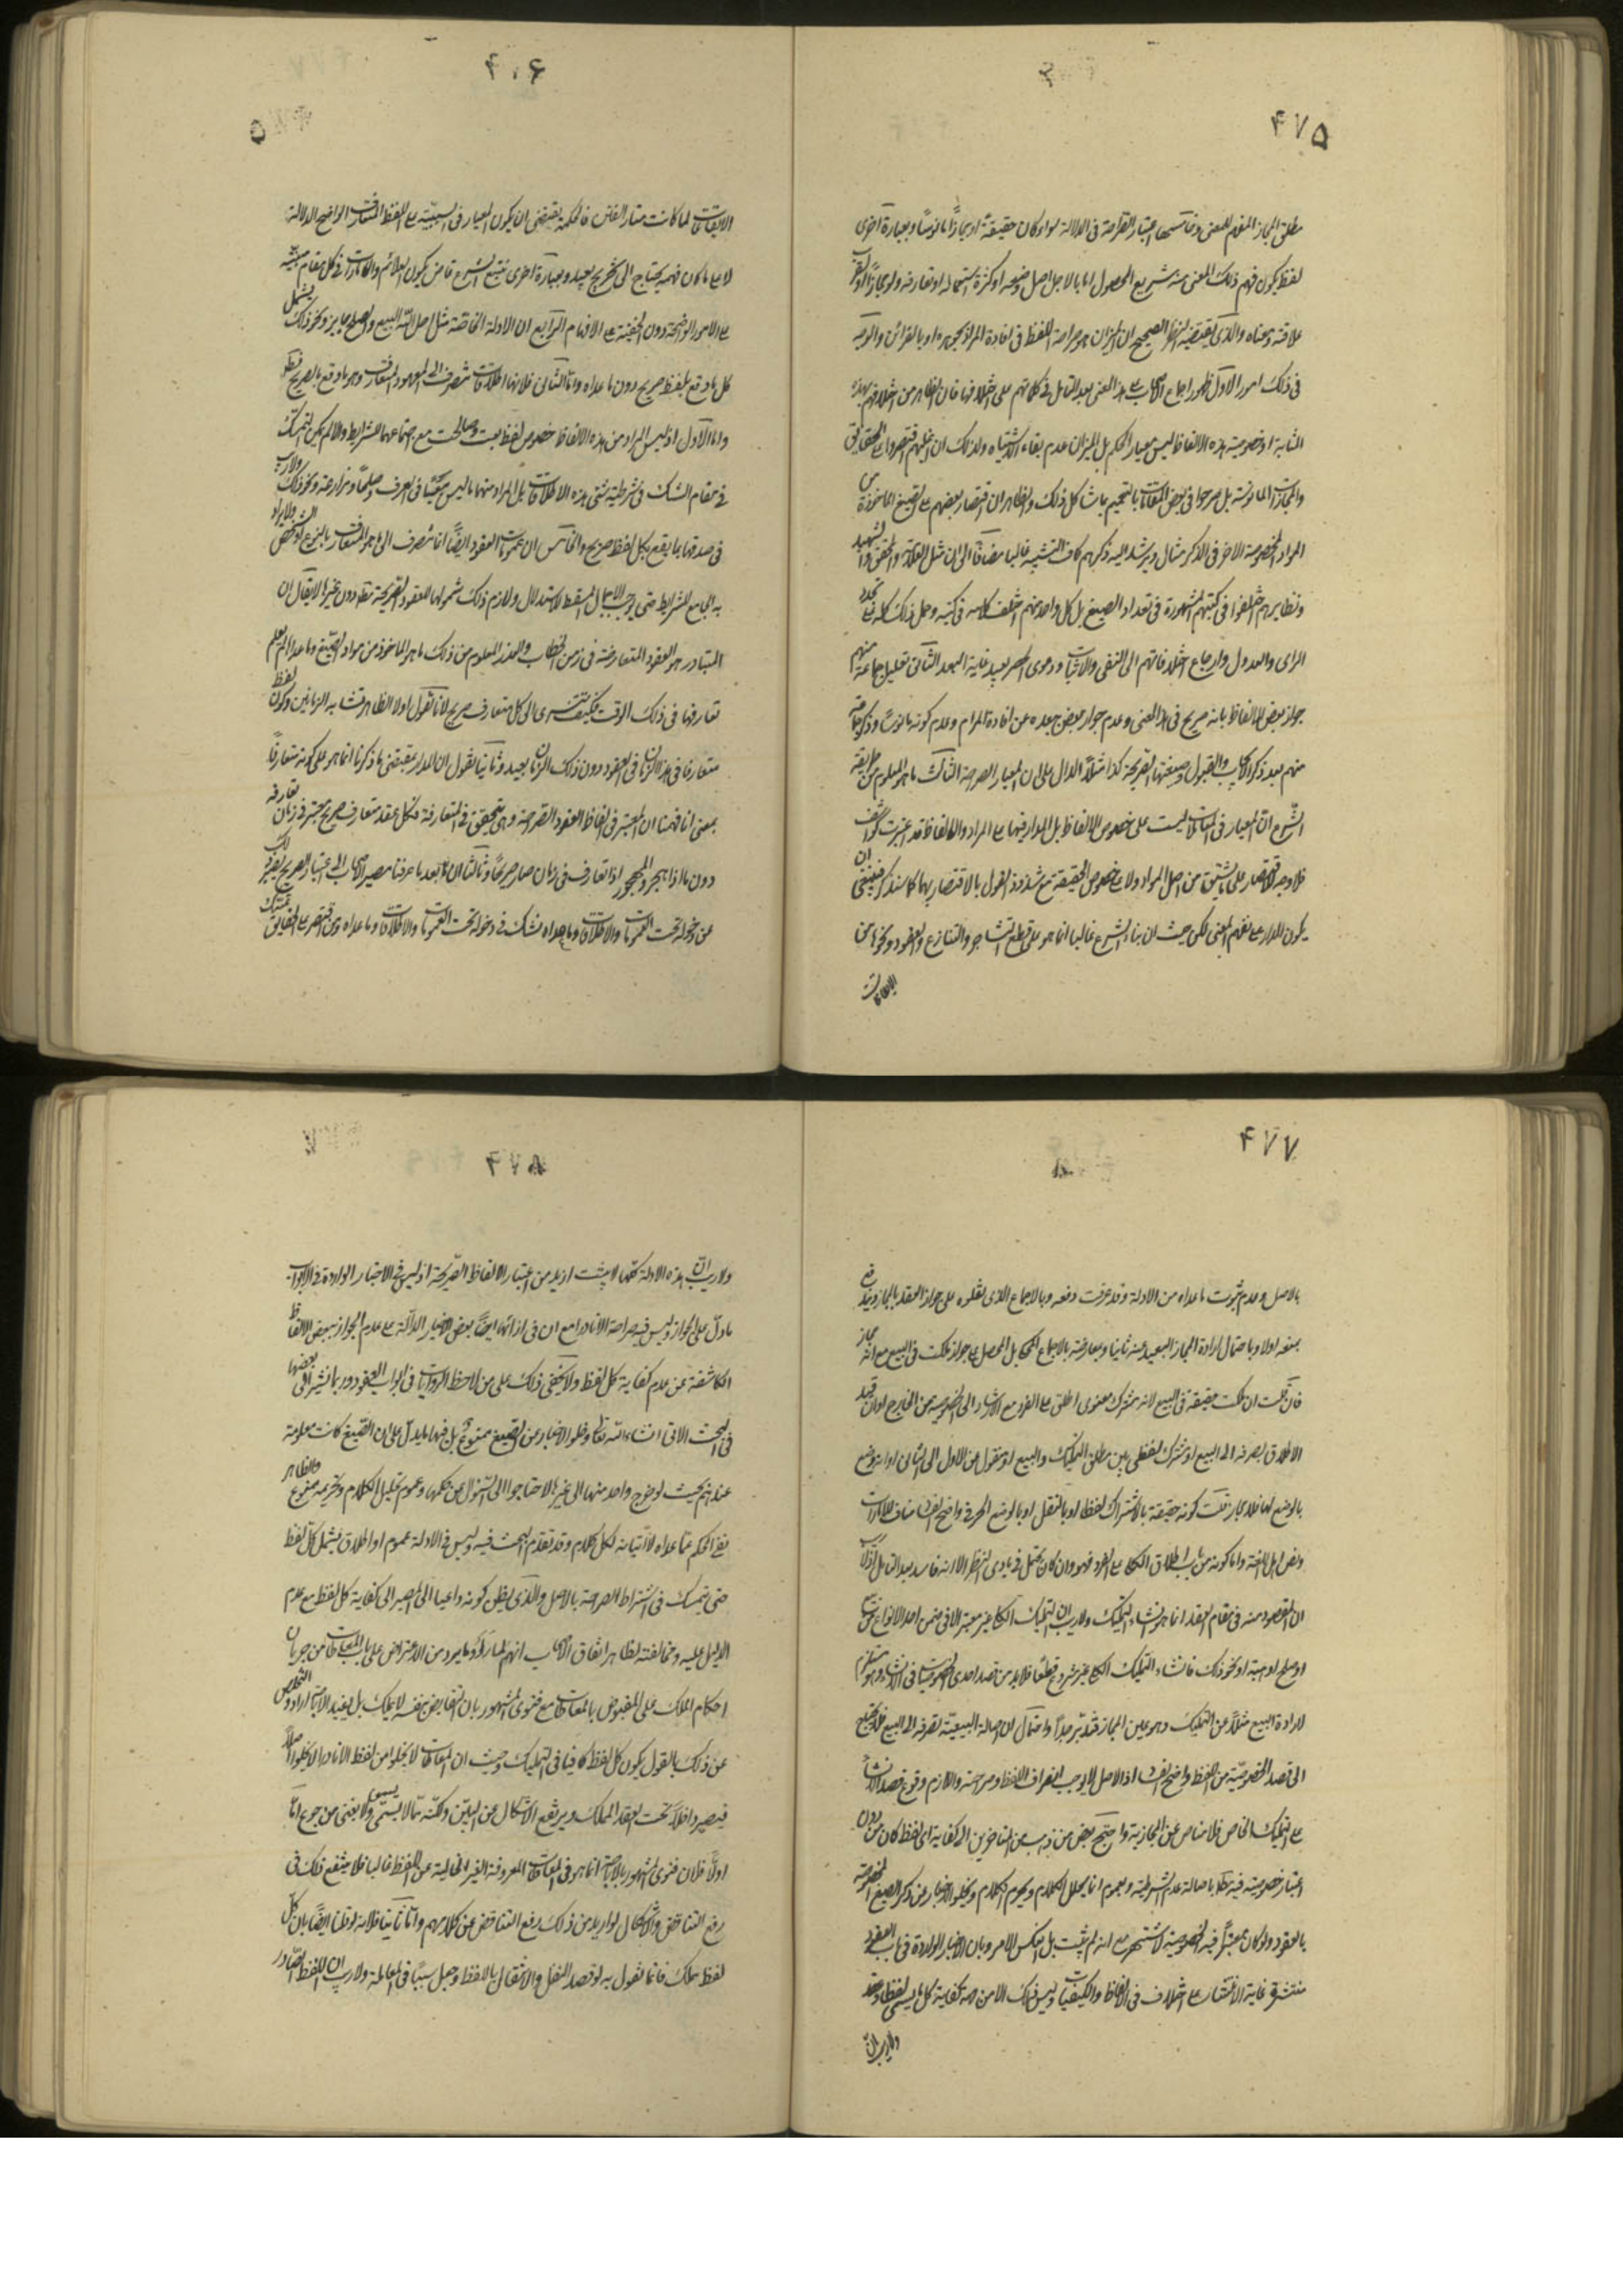 ۴۷۵
مطلق المجاز المفهم للمعنى وخامسها اعتبار الصراحة فى الدلالة سواء كان حقيقة او مجازًا مانوسًا وبعبارة اخرى
لفظ يكون فهم ذلك المعنى منه سريع الحصول اما لاجل اصل وضعه او كثرة استعماله او تعارفه ولو مجازًا او لقرب
علاقته ومعناه والذى يقتضيه النظر الصحيح ان الميزان هو صراحة اللفظ فى افادة المراد بجوهره او بالقرائن والوجه
فى ذلك امور الاول ظهور اجماع الاصحاب على هذا المعنى بعد التامل فى كلماتهم على اختلافها فان الظاهر من اختلافهم بهذه
المثابة ان خصوصية هذه الالفاظ ليس معيار الحكم بل الميزان عدم بقاء الاشتباه ولذلك ان اغلبهم اقتصروا على الحقايق
والمجازات المانوسة بل صرحوا فى بعض المقامات بالتعميم بما شاكل ذلك والظاهر ان اقتصار بعضهم على الصيغ الماخوذة من
المواد المخصوصة الاخر فى الذكر مثال ويرشد اليه ذكرهم كاف التشبيه غالبا مضافًا الى ان مثل العلامة والمحقق والشهيد
ونظايرهم اختلفوا فى كتبهم المشهورة فى تعداد الصيغ بل كل واحد منهم اختلف كلامه فى كتبه وحمل ذلك كله على تجدد
الراى والعدول وارجاع اختلافاتهم الى النفى والاثبات ودعوى الحصر بعيد غاية البعد الثانى تعليل جماعة منهم
جواز بعض الالفاظ بانه صريح فى هذا المعنى وعدم جواز بعض بعده عن افادة المرام وعدم كونه مانوسًا وذكر جماعة
منهم بعد ذكر الايجاب والقبول وصيغتها الصريحة كذا مثلًا الدال على ان المعيار الصراحة الثالث ما هو المعلوم من طريقة
الشرع ان المعيار فى المعاملات ليست على خصوص الالفاظ بل المدار فيها على المراد والالفاظ قد اعتبرت كواشف
فلا وجه للاقتصار على ما اشتق من اصل المواد ولا على خصوص الحقيقة مع شذوذ القول بالاقتصار بهما كما سنذكر فينبغى ان
يكون المدار على تفهيم المعنى لكن حيث ان بناء الشرع غالبا انما هو على قطع التشاجر والتنازع والعقود ونحوها من
الايقاعات
۴۷۶
الايقاعات لما كانت مثار الفتن فالحكمة تقتضى ان يكون المعيار فى السببية على اللفظ المتعارف الواضح الدلالة
لا على ما كان فهمه يحتاج الى تخريج بعيد وبعبارة اخرى تتبع الشرع قاض بكون العلائم والامارات فى كل مقام مبتنية
على الامور الواضحة دون الخفية على الافهام الرابع ان الادلة الخاصة مثل احل الله البيع والصلح جايز ونحو ذلك يشمل
كل ما وقع بلفظ صريح دون ما عداه واما الثانى فلانها اطلاقات تنصرف الى المعهود المتعارف وهو ما وقع بالصريح فقط
واما الاول اذ ليس المراد من هذه الالفاظ خصوص لفظ بعت وصالحت مع اجتماعهما للشرايط والا لم يكن التمسك
فى مقام الشك فى شرطية شئ بهذه الاطلاقات بل المراد منها ما ليس بيعًا فى العرف وصلحًا ومزارعة ونحو ذلك ولا ريب
فى صدقها بما يقع بكل لفظ صريح والخامس ان عمومات العقود ايضًا انما تنصرف الى ما هو المتعارف بالنوع لا الشخص ولا يراد
به الجامع للشرايط حتى يوجب الاجمال المسقط للاستدلال ولازم ذلك شمولها للعقود الصريحة فقط دون غيرها لا يقال ان
المتبادر هو العقود المتعارفة فى زمن الخطاب والقدر المعلوم من ذلك ما هو الماخوذ من مواد الصيغ وما عداه لم يعلم
تعارفها فى ذلك الوقت فكيف تتسرى الى كل متعارف صريح لانا نقول اولا الظاهر تشابه الزمانين وكون لفظ
متعارفا فى هذا الزمان فى العقود دون ذلك الزمان بعيد وثانيا نقول ان المدار بمقتضى ما ذكرنا انما هو على كونه متعارفًا
بمعنى انا فهمنا ان المعتبر فى الفاظ العقود الصراحة وهى يتحقق فى المتعارفة فكل عقد متعارف صريح معتبر فى زمان تعارفه
دون ما اذا هجر والمهجور اذا تعارف فى زمان صار صريحًا وثالثًا انا بعد ما عرفنا مصير الاصحاب الى اعتبار الصريح لا ريب
عن دخوله تحت العمومات والاطلاقات وما عداه نشك فى دخوله تحت العمومات والاطلاقات وما عداه ومن اقتصر على الحقايق تمسك
۴۷۷
بالاصل وعدم ثبوت ما عداه من الادلة وقد عرفت دفعه وبالاجماع الذى نقلوه على عدم جواز العقد بالمجاز ويدفع
بمنعه اولا وباحتمال ارادة المجاز البعيد منه ثانيا وبمعارضته بالاجماع المحكى بل المحصل على جواز ملكت فى البيع مع انه مجاز
فان قلت ان ملكت حقيقة فى البيع لانه مشترك معنوى اطلق على الفرد مع الارشاد الى الخصوصية من الخارج او ان قيد
الاطلاق يصرفه الى البيع او مشترك لفظى بين مطلق التمليك والبيع او منقول من الاول الى الثانى او انه وضع
بالوضع لها فلا مجاز قلت كونه حقيقة بالاشتراك لفظا او بالنقل او بالوضع الحرفى واضح الفساد مناف للامارات
ونص اهل اللغة واما كونه من باب اطلاق الكلى على الفرد فهو وان كان يحتمل فى بادى النظر الا انه فاسد بعد التامل اذ لا ريب
ان المقصود منه فى مقام العقد انما هو انشاء التمليك ولا ريب ان التمليك الكلى غير معتبر الا فى ضمن احد الانواع من بيع
او صلح او هبة او نحو ذلك فانشاء التمليك الكلى غير مشروع قطعًا فلا بد من قصد احدى الخصوصيات فى الانشاء وهو مستلزم
لارادة البيع مثلًا من التمليك وهو عين المجاز فتدبر جدًا واحتمال ان اصالة البيعية تصرفه الى البيع فلا يحتاج
الى قصد الخصوصية من اللفظ واضح الفساد اذ الاصل لا يوجب انصراف اللفظ وصراحته واللازم وقوع قصد الانشاء
على التمليك الخاص فلا مناص عن المجازية واحتج بعض من ذهب من المتاخرين الى كفاية اى لفظ كان من دون
اعتبار خصوصية فيه باصالة عدم الشرطية وبعموم انما يحلل الكلام ويحرم الكلام وبخلو الاخبار عن ذكر الصيغ المخصوصة
بالعقود ولو كان معتبرًا فيه الخصوصية لاشتهر مع انه لم يثبت بل انعكس الامر وبان الاخبار الواردة فى باب العقود
منتشرة غاية الانتشار على اختلاف فى الالفاظ والكيفيات وليس ذلك الا من جهة كفاية كل ما يسمى لفظا وعقد
ولا ريب ان
۴۷۸
ولا ريب ان هذه الادلة كلها لا يثبت ازيد من اعتبار الالفاظ الصريحة اذ ليس فى الاخبار الواردة فى الابواب
ما دل على الجواز وليس فيه صراحة الا نادرا مع ان فى ازائها ايضًا بعض الاخبار الدالة على عدم الجواز ببعض الالفاظ
الكاشفة عن عدم كفاية كل لفظ ولا يخفى ذلك على من لاحظ الروايات فى ابواب العقود وربما نشير الى بعضها
فى البحث الاتى انشاء الله تعالى وخلو الاخبار عن الصيغ ممنوع بل فيها ما يدل على ان الصيغ كانت معلومة
عندهم بحيث لو خرج واحد منها الى غيرها لاحتاجوا الى السئوال عن حكمها وعموم تحليل الكلام وتحريمه ممنوع والظاهر
نفى الحكم عما عداه لا اثباته لكل كلام وقد تقدم البحث فيه وليس فى الادلة عموم او اطلاق يشمل كل لفظ
حتى يتمسك فى اشتراط الصراحة بالاصل والذى يظن كونه داعيا الى المصير الى كفاية كل لفظ مع عدم
الدليل عليه ومخالفته لظاهر اتفاق الاصحاب انهم لما راوا ما يرد من الاعتراض على باب المعاطات من جريان
احكام الملك على المقبوض بالمعاطات مع فتوى المشهور بان التقابض بنفسه لا يملك بل يفيد الاباحة ارادوا التخلص
عن ذلك بالقول بكون كل لفظ كافيا فى التمليك وحيث ان المعاطات لا يخلوا من لفظ الا نادرا لا يخلوا اصلًا
فيصير داخلًا تحت العقد المملك ويرتفع الاشكال عن البين ولكنه مما لا يسمن ولا يغنى من جوع اما
اولًا فلان فتوى المشهور بالاباحة انما هو فى المعاطات المعروفة الغير الخالية عن اللفظ غالبا فلا ينفع ذلك فى
رفع التناقض والاشكال لو اريد من ذلك رفع التناقض عن كلامهم واما ثانيا فلانه لو قلنا ايضًا بان كل
لفظ يملك فانما نقول به لو قصد النقل والانتقال باللفظ وجعل سببًا فى المعاملة ولا ريب ان اللفظ الصادر